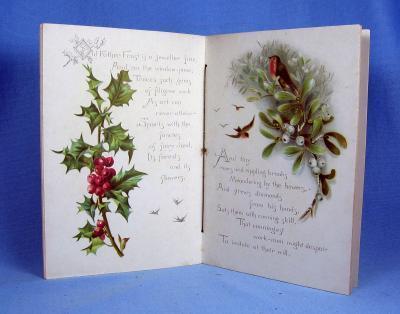 Old Father Frost is a jeweller fine,
And on the window-pane,
Traces such gems
of filigree work
As art can
never attain—
Sports with the
fancies
of fairy-land,
Its forests
and its
flowers.
And tiny
and rippling brooks
Meandering by the bowers,
And strews diamonds
from his hands,
Sets them with cunning skill,
That cunningest
work-man might despair
To imitate at their will.